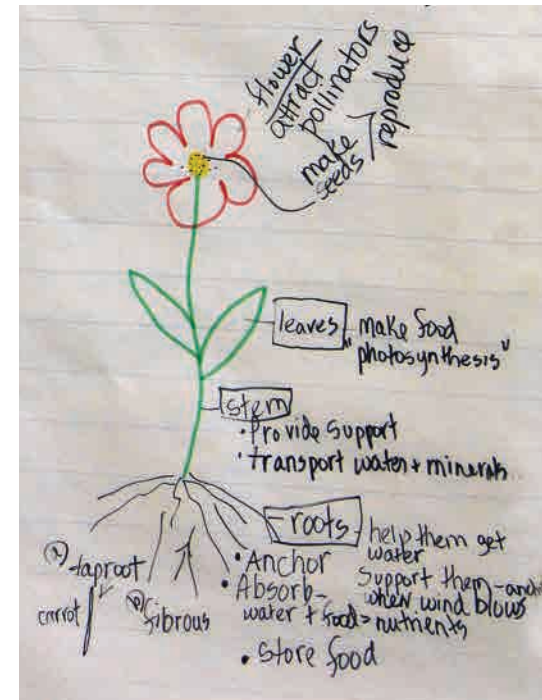 flower
attract
pollinators
make
seeds
reproduce
leaves
make food
"photosynthesis"
stem
• Provide support
• transport water + minerals
roots
help them get
water
support them -
when wind blows
• Anchor
• Absorb -
water + food > nutrients
• Store food
taproot
carrot
fibrous